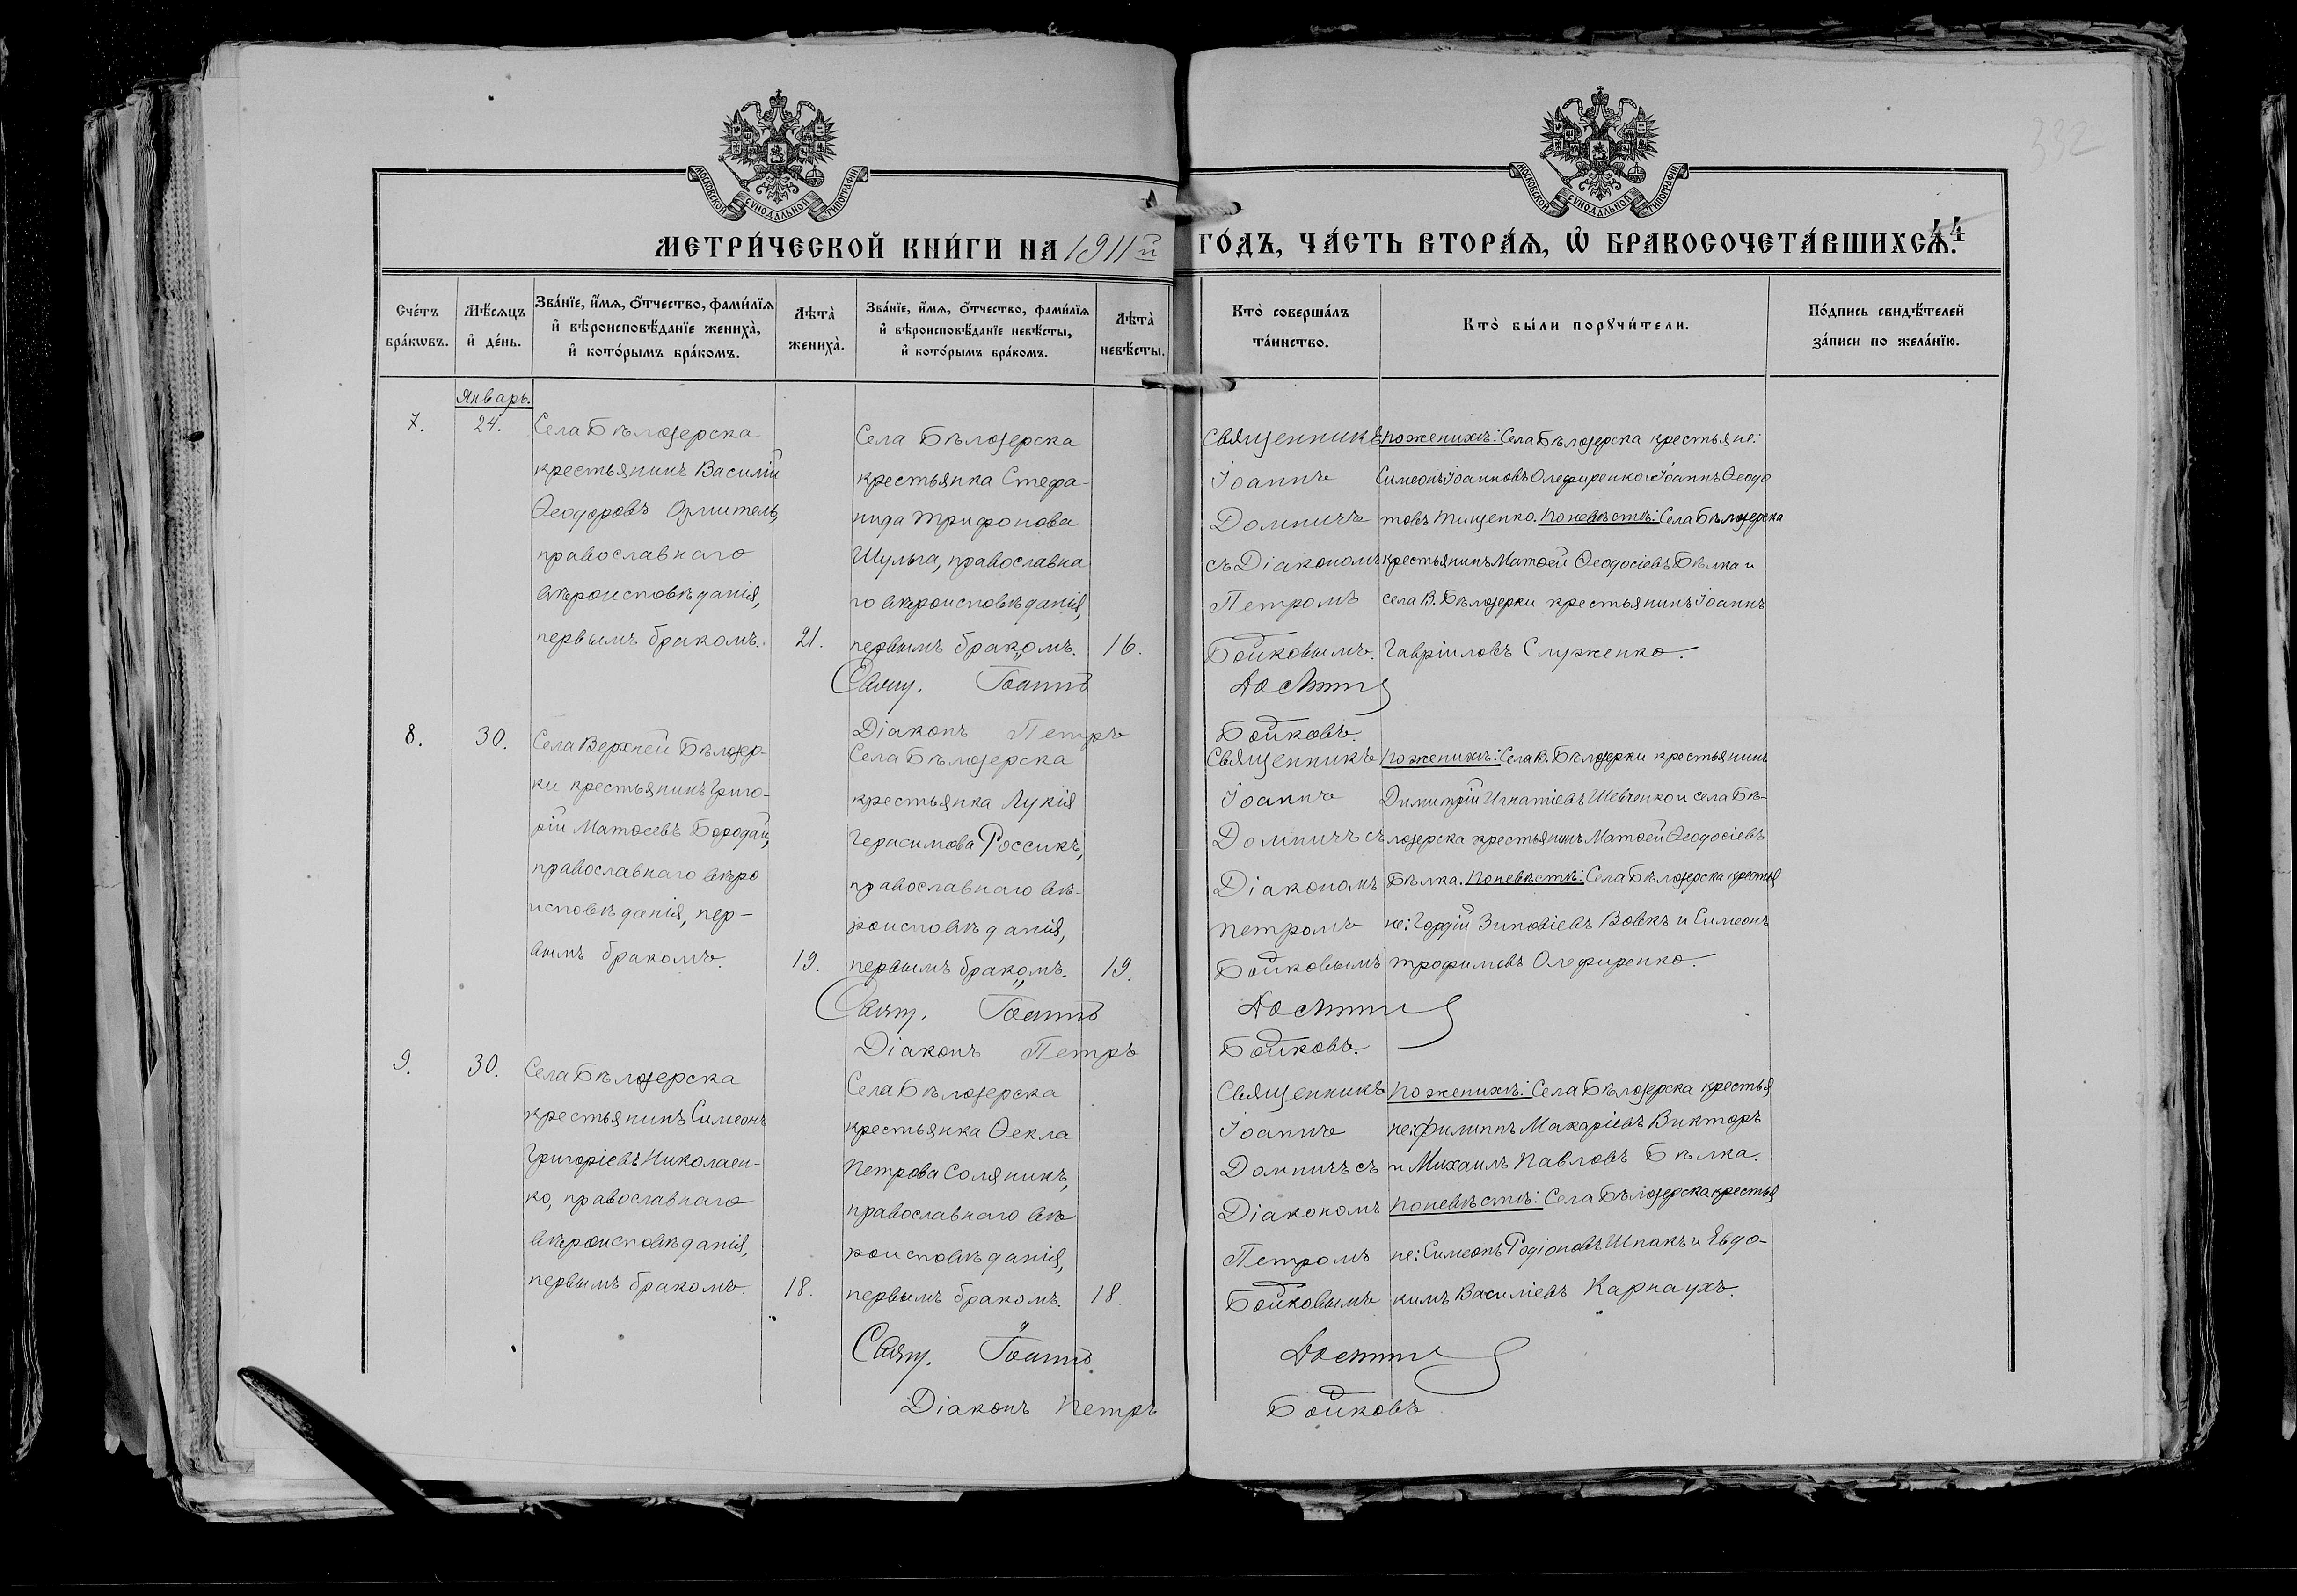 332
МОСКОВСКОЙ СѴНОДАЛЬНОЙ ТИПОГРАФІИ
МОСКОВСКОЙ СѴНОДАЛЬНОЙ ТИПОГРАФІИ
44
МЕТРИ́ЧЕСКОЙ КНИ́ГИ НА 1911й ГО́ДЪ, ЧА́СТЬ ВТОРА́Ѧ, Ѡ҆ БРАКОСОЧЕТА́ВШИХСѦ.
Сче́тъ бра́кѡвъ.
Мѣ́сѧцъ и҆ де́нь.
Зва́нїе, и҆́мѧ, ѻ҆́тчество, фамилїѧ и҆ вѣроисповѣ́данїе жениха̀, и҆ кото́рымъ бра́комъ.
Лѣта̀ жениха̀.
Зва́нїе, и҆́мѧ, ѻ҆́тчество, фамилїѧ и҆ вѣроисповѣ́данїе невѣ́сты, и҆ кото́рымъ бра́комъ.
Лѣта̀ невѣ́сты.
Кто̀ соверша́лъ та́инство.
Кто̀ бы́ли порꙋчи́тели.
По́дпись свидѣ́телей за́писи по жела́нїю.
Январь.
7.
24.
Села Бѣлозерска
крестьянинъ Василій
Ѳеодоровъ
православнаго
вѣроисповѣданія,
первымъ бракомъ.
21.
Села Бѣлозерска
крестьянка Стефа-
нида Трифонова
Шульга, православна
го вѣроисповѣданія,
первымъ бракомъ.
16.
Священникъ
Іоаннъ
Домничъ
съ Діакономъ
Петромъ
Бойковымъ.
По женихѣ: Села Бѣлозерска крестьяне:
Симеонъ Іоанновъ Олефиренко и Іоаннъ Ѳеодо
товъ Тищенко. По невѣстѣ: Села Бѣлозерска
крестьянинъ Матѳей Ѳеодосіевъ Бѣлка и
села В. Бѣлозерки крестьянинъ Іоаннъ
Гавріиловъ Служенко.
Свящ. Іоаннъ Домничъ
Діаконъ Петръ Бойковъ.
8.
30.
Села Верхней Бѣлозер-
ки крестьянинъ Григо-
рій Матѳеевъ Бородай,
православнаго вѣро
исповѣданія, пер-
вымъ бракомъ.
19.
Села Бѣлозерска
крестьянка Лукія
Герасимова Россикъ,
православнаго вѣ-
роисповѣданія,
первымъ бракомъ.
19.
Священникъ
Іоаннъ
Домничъ съ
Діакономъ
Петромъ
Бойковымъ
По женихѣ: Села В. Бѣлозерки крестьянинъ
Димитрій Игнатіевъ Шевченко и села Бѣ-
лозерска крестьянинъ Матѳей Ѳеодосіевъ
Бѣлка. По невѣстѣ: Села Бѣлозерска крестья
не: Гордій Зиновіевъ Вовкъ и Симеонъ
Трофимовъ Олефиренко.
Свящ. Іоаннъ Домничъ
Діаконъ Петръ Бойковъ.
9.
30.
Села Бѣлозерска
крестьянинъ Симеонъ
Григоріевъ Николаен-
ко, православнаго
вѣроисповѣданія,
первымъ бракомъ.
18.
Села Бѣлозерска
крестьянка Ѳекла
Петрова Соляникъ,
православнаго вѣ
роисповѣданія,
первымъ бракомъ.
18.
Священникъ
Іоаннъ
Домничъ съ
Діакономъ
Петромъ
Бойковымъ
По женихѣ: Села Бѣлозерска крестья
не: Филиппъ Макаріевъ Викторъ
и Михаилъ Павловъ Бѣлка.
По невѣстѣ: Села Бѣлозерска крестья
не: Симеонъ Родіоновъ Шпакъ и Евдо-
кимъ Василіевъ Карнаухъ.
Свящ. Іоаннъ Домничъ
Діаконъ Петръ Бойковъ